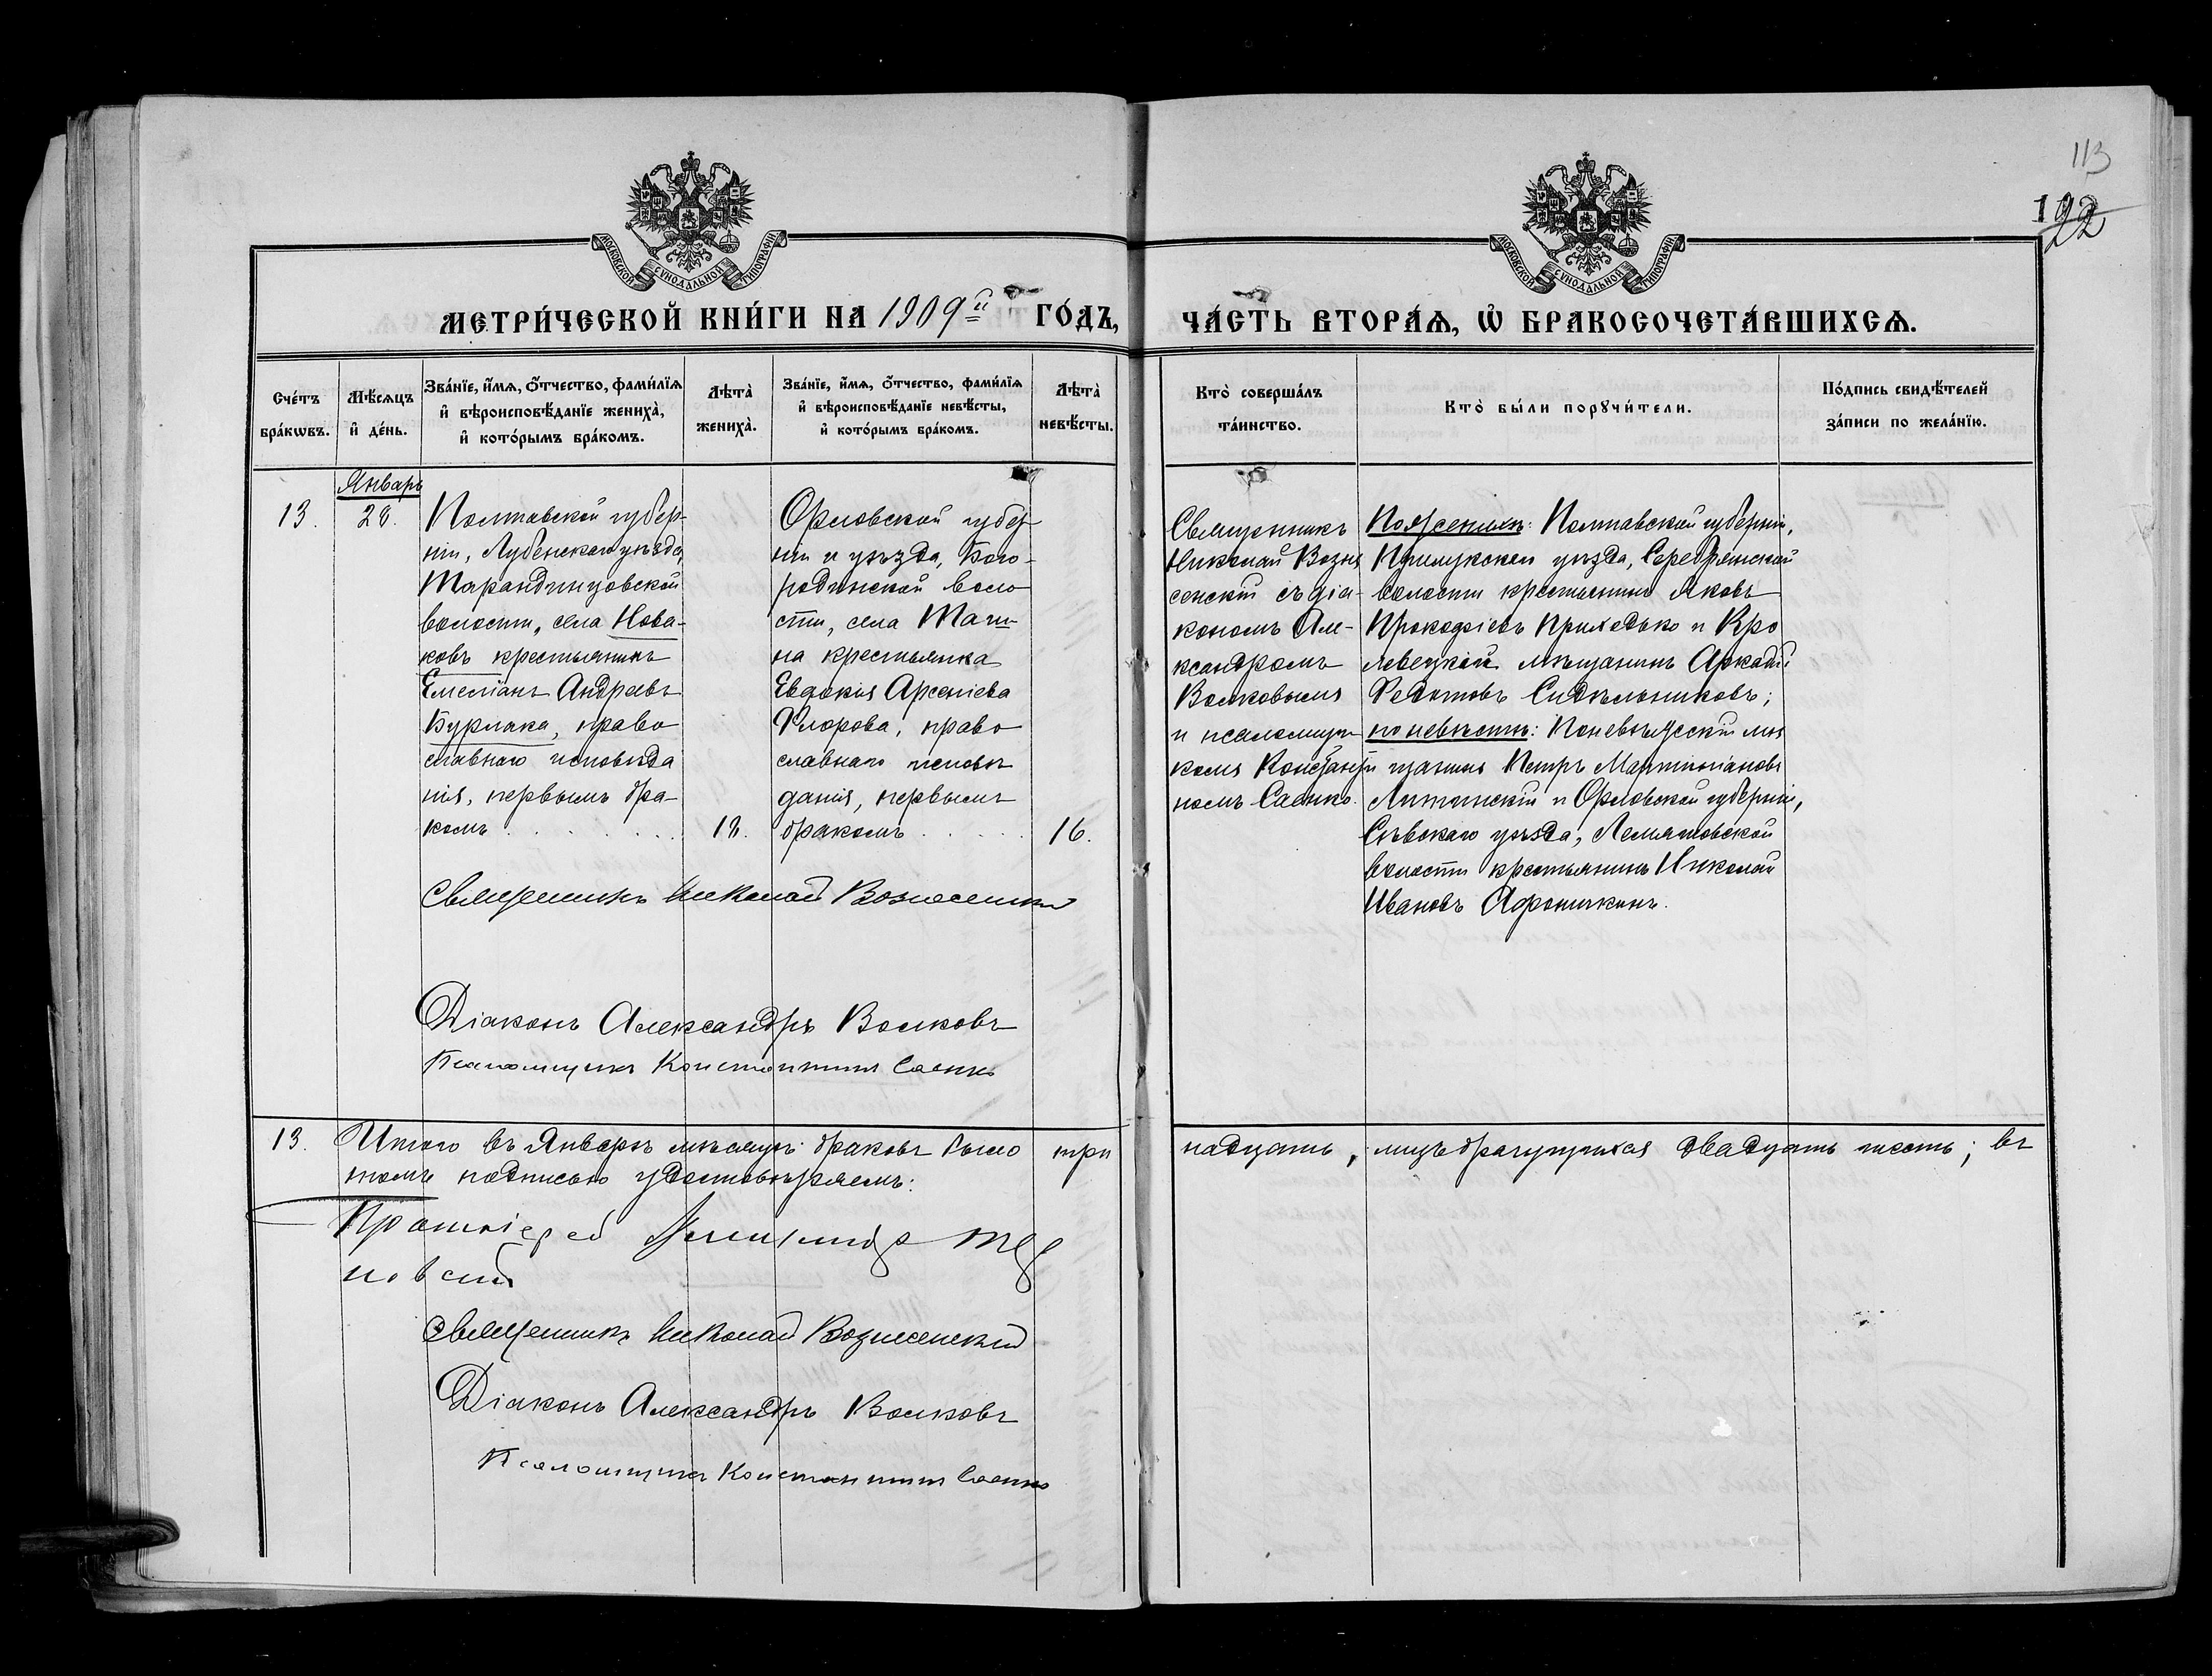 113
192
МОСКОВСКОЙ СѴНОДАЛЬНОЙ ТИПОГРАФІИ
МОСКОВСКОЙ СѴНОДАЛЬНОЙ ТИПОГРАФІИ
МЕТРИ́ЧЕСКОЙ КНИ́ГИ НА 1909й ГО́ДЪ,
ЧА́СТЬ ВТОРА́Ѧ, Ѽ БРАКОСОЧЕТА́ВШИХСѦ.
Сче́тъ
бра́кѡвъ.
Мѣ́сѧцъ
и҆ де́нь.
Зва́нїе, и҆́мѧ, ѻ҆́тчество, фами́лїѧ
и҆ вѣроисповѣ́данїе жениха̀,
и҆ кото́рымъ бра́комъ.
Лѣта̀
жениха̀.
Зва́нїе, и҆́мѧ, ѻ҆́тчество, фами́лїѧ
и҆ вѣроисповѣ́данїе невѣ́сты,
и҆ кото́рымъ бра́комъ.
Лѣта̀
невѣ́сты.
Кто̀ соверша́лъ
та́инство.
Кто̀ бы́ли порꙋчи́тели.
По́дпись свидѣ́телей
за́писи по жела́нїю.
Январь
13.
28.
Полтавской губер-
ніи, Лубенскаго уѣзда,
Тарандинцовской
волости, села Нова-
ковъ крестьянинъ
Емеліанъ Андреевъ
Бурлака, право
славнаго исповѣда
нія, первымъ бра-
комъ
18.
Орловской губер-
ніи и уѣзда, Бого-
родинской воло
сти, села
на крестьянка
Евдокія Арсеніева
Флорова, право
славнаго исповѣ
данія, первымъ
бракомъ
16.
Священникъ
Николай Возне
сенскій съ діа-
кономъ Але-
ксандромъ
Волковымъ
и псаломщи
комъ Константи
номъ Саенко.
По женихѣ: Полтавской губерніи,
Прилукскаго уѣзда, Серебрянской
волости крестьянинъ Яковъ
Прокофіевъ Приходько и Кро
левецкій мѣщанинъ Аркадій
Федотовъ Сидѣльниковъ;
по невѣстѣ: Поневѣжскій мѣ
щанинъ Петръ Мартиніановъ
Литвинскій и Орловской губерніи,
Сѣвскаго уѣзда, Лемяшовской
волости крестьянинъ Николай
Ивановъ Афоничкинъ.
Священникъ Николай Вознесенскій
Діаконъ Александръ Волковъ
Псаломщикъ Константинъ Саенко
13. Итого въ Январѣ мѣсяцѣ: браковъ было три
надцать, лицъ брачущихся двадцать шесть; въ
томъ подписью удостовѣряемъ:
Протоіерей
новскій
Священникъ Николай Вознесенскій
Діаконъ Александръ Волковъ
Псаломщикъ Константинъ Саенко